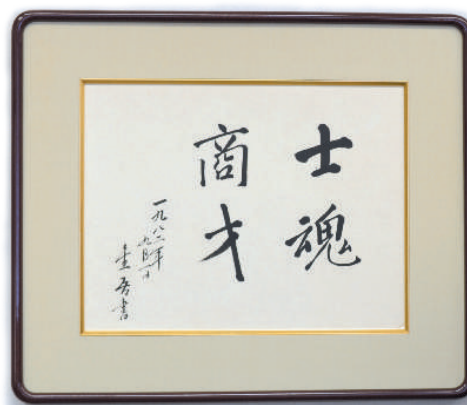 士魂
商才
一九八二年
九月一日
圭吾書